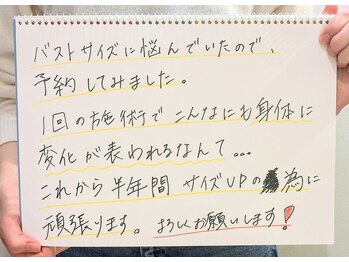 バストサイズに悩んでいたので、
予約してみました。
1回の施術でこんなにも身体に
変化が表われるなんて...
これから半年間サイズUPの為に
頑張ります。よろしくお願いします!